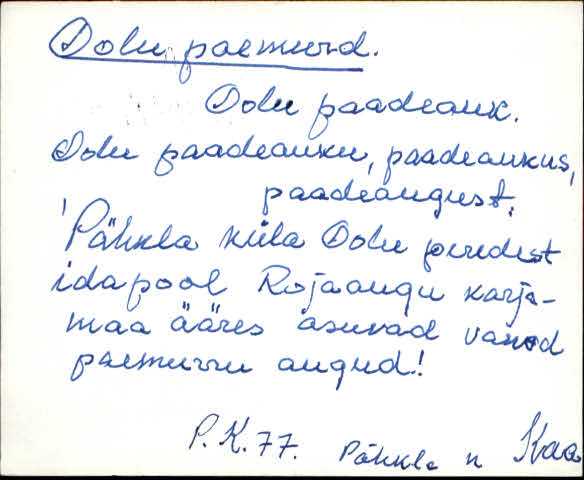 Oolu paemurd.
Oolu paadeauk.
Oolu paadeauku, paadeaukus,
paadeaugust.
'Pähkla küla Oolu peredest
idapool Rojaaugu karja-
maa ääres asuvad vanad
paemurru augud!
P.K.77. Pähkla k Kaa